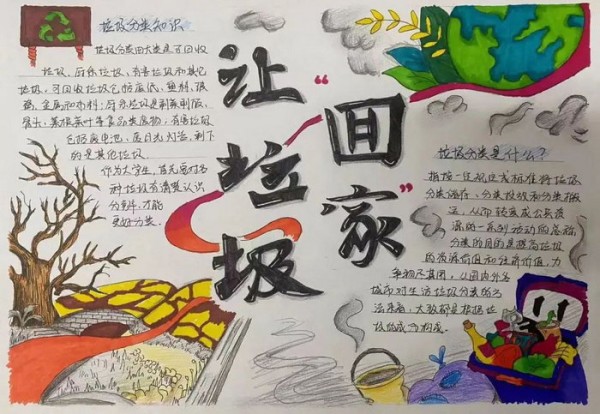 让垃圾
“回家”
垃圾分类知识
垃圾分类四大类是可回收
垃圾、厨余垃圾、有害垃圾和其它
垃圾。可回收垃圾包括废纸、塑料、玻
璃、金属和布料；厨余垃圾是剩菜剩饭、
骨头、菜根菜叶等食品类废物；有害垃圾
包括废电池、废日光灯管，剩下
的是其他垃圾。
作为大学生，首先要对各
种垃圾有清楚认识
才能
更好分类。
垃圾分类是什么？
指按一定规定或标准将垃圾
分类储存、分类投放和分类搬
运，从而转变成公共资
源的一系列活动的总称
分类的目的是提高垃圾
的资源价值和经济价值，力
争物尽其用，从国内外各
城市对生活垃圾分类的方
法来看，大致都是根据垃
圾的成分构成。